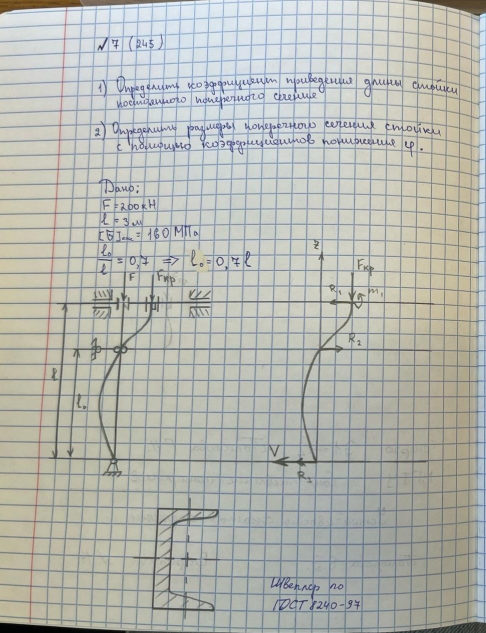 №7 (245)
1) Определить коэффициент приведения длины стойки
постоянного поперечного сечение
2) Определить размеры поперечного сечения стойки
с помощью коэффициентов понижения φ.
Дано:
F = 200 кН
l = 3 м
[σ] = 160 МПа
l₀/l = 0,7 ⇒ l₀ = 0,7 l
z
F
Fкр
Fкр
R₁
m₁
R₂
l
l₀
V
R₃
Швеллер по
ГОСТ 8240-97